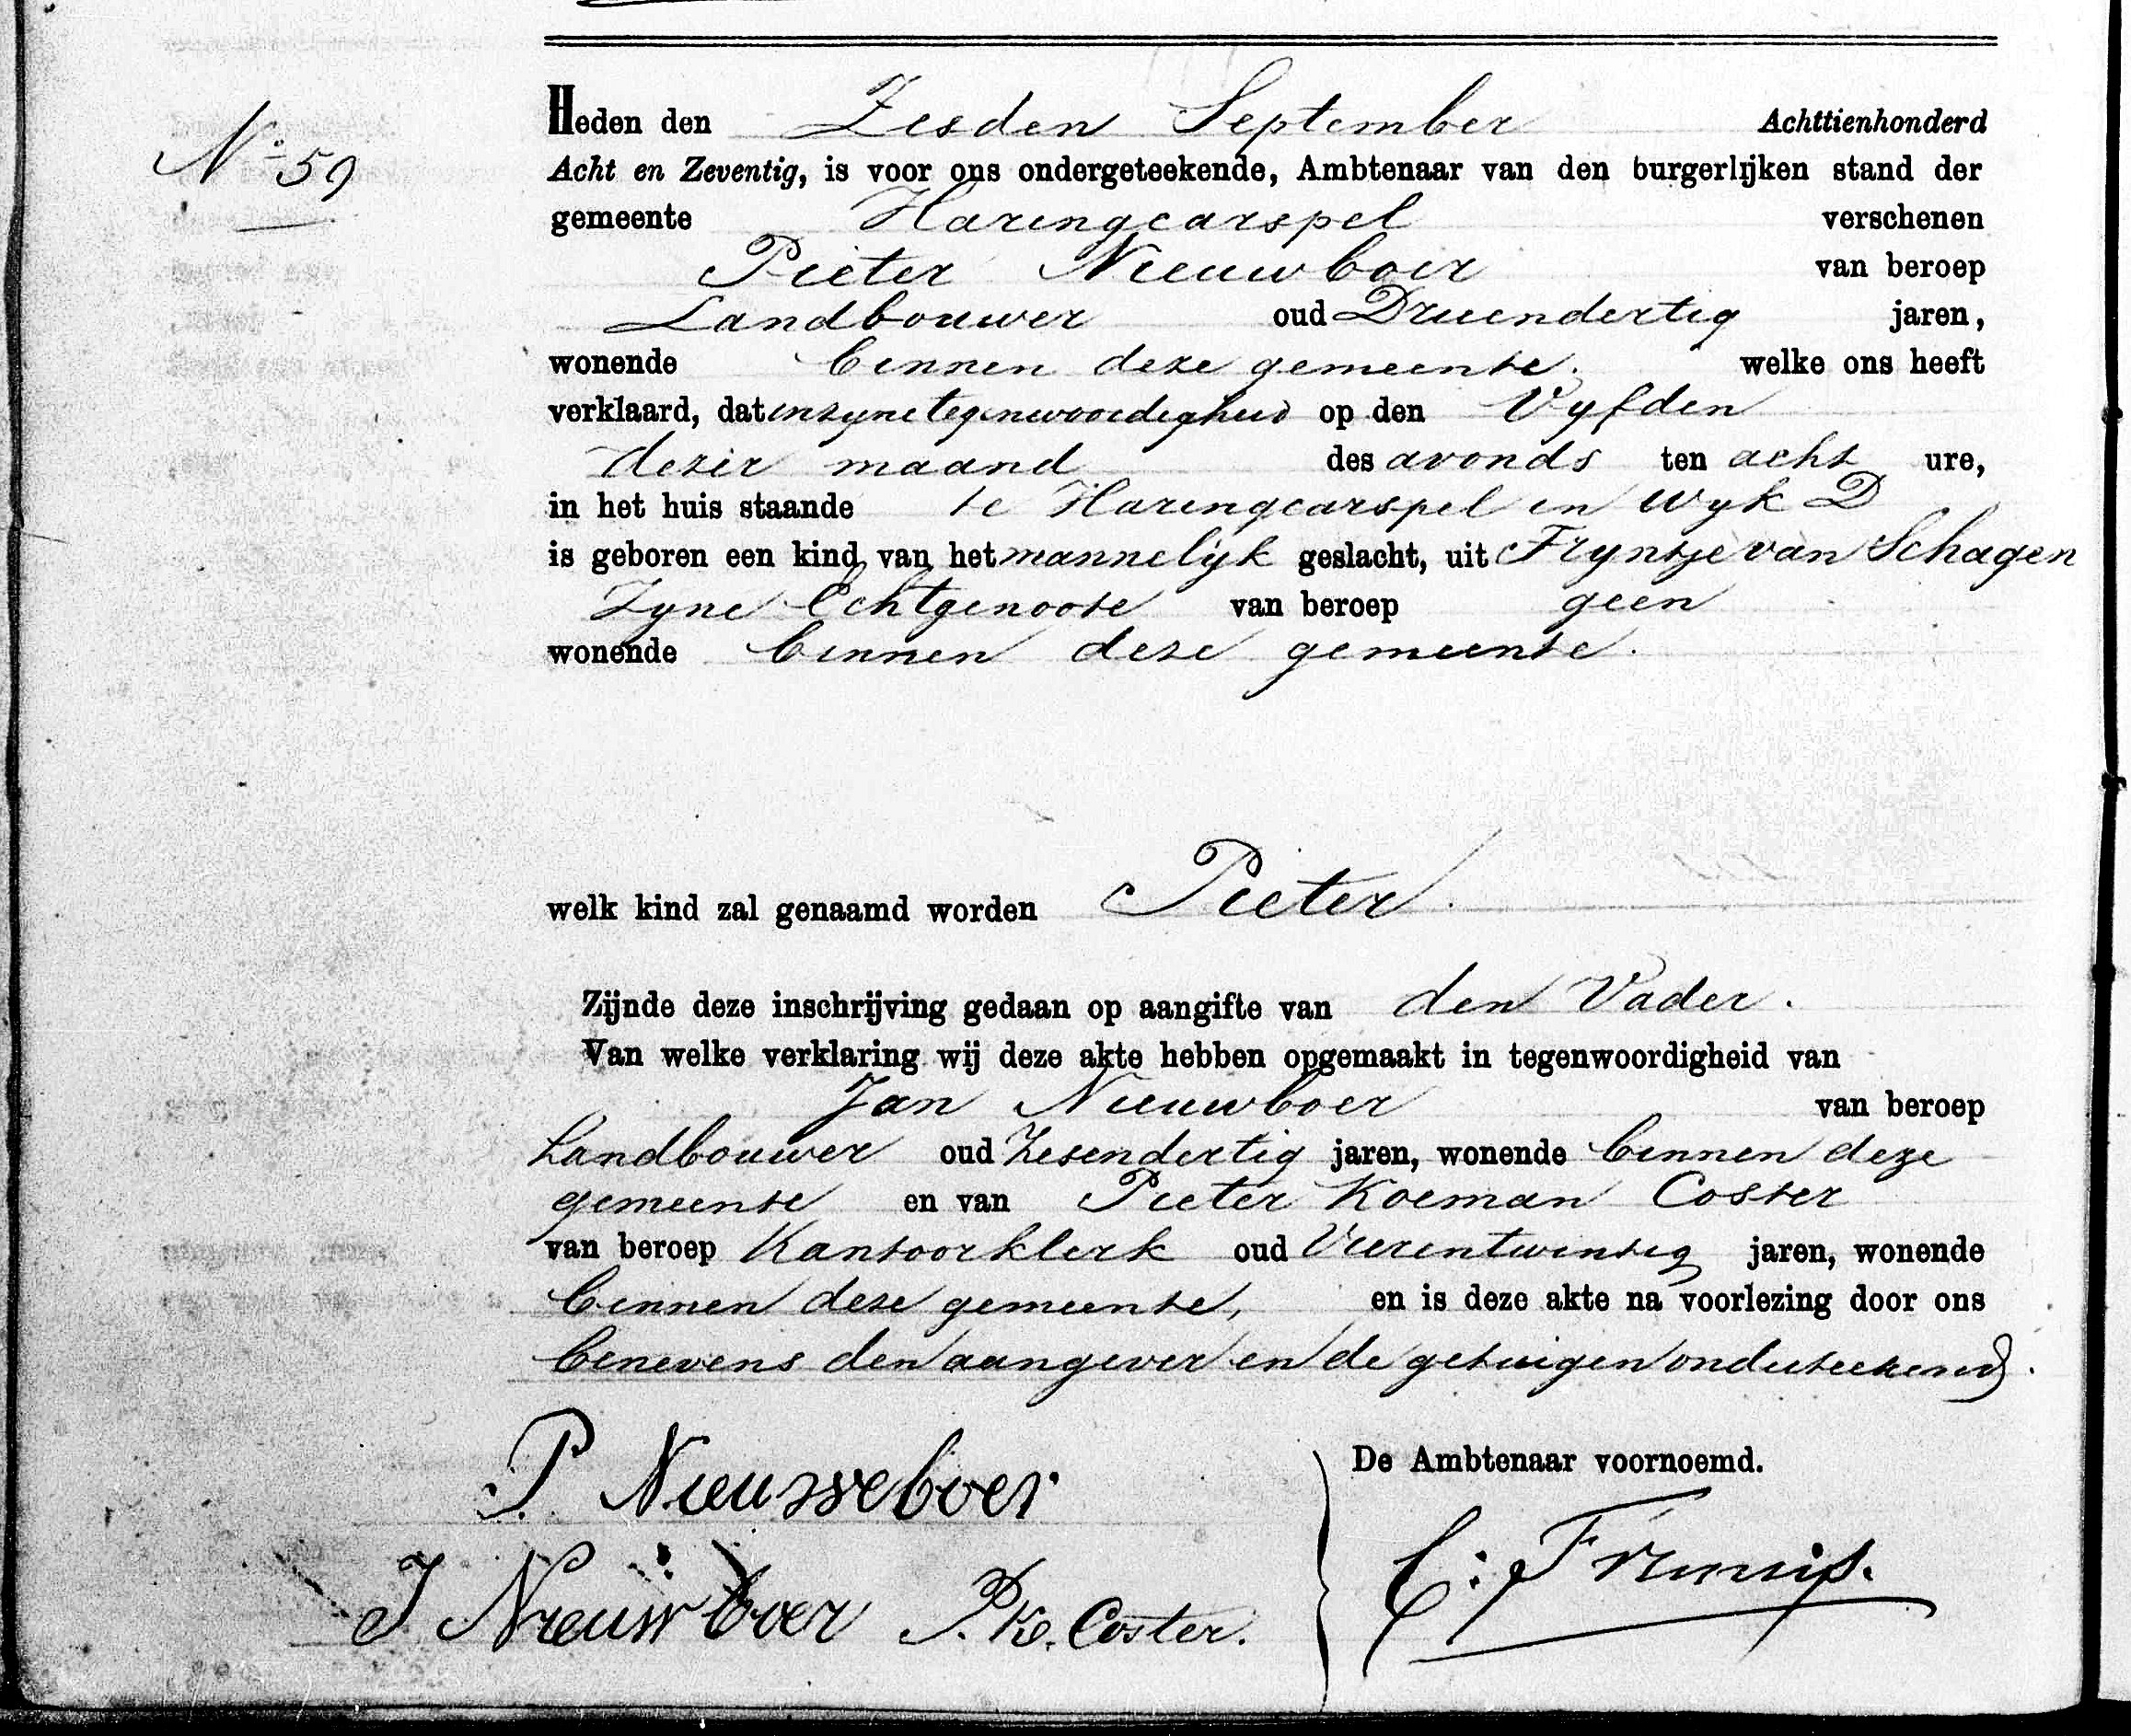 No 59
Heden den Zesden September Achttienhonderd
Acht en Zeventig, is voor ons ondergeteekende, Ambtenaar van den burgerlijken stand der
gemeente Haringcarspel verschenen
Pieter Nieuwboer van beroep
Landbouwer oud Drieendertig jaren,
wonende binnen deze gemeente. welke ons heeft
verklaard, dat in zyne tegenwoordigheid op den Vyfden
dezer maand des avonds ten acht ure,
in het huis staande te Haringcarspel in wyk D
is geboren een kind van het mannelijk geslacht, uit Tryntje van Schagen
Zyne Echtgenoote van beroep geen
wonende binnen deze gemeente.
welk kind zal genaamd worden Pieter.
Zijnde deze inschrijving gedaan op aangifte van den Vader.
Van welke verklaring wij deze akte hebben opgemaakt in tegenwoordigheid van
Jan Nieuwboer van beroep
Landbouwer oud Zesendertig jaren, wonende binnen deze
gemeente en van Pieter Koeman Coster
van beroep Kantoorklerk oud Vierentwintig jaren, wonende
binnen deze gemeente, en is deze akte na voorlezing door ons
benevens den aangever en de getuigen onderteekend.
De Ambtenaar voornoemd.
P Nieuweboer
J Nieuwboer P. K. Coster.